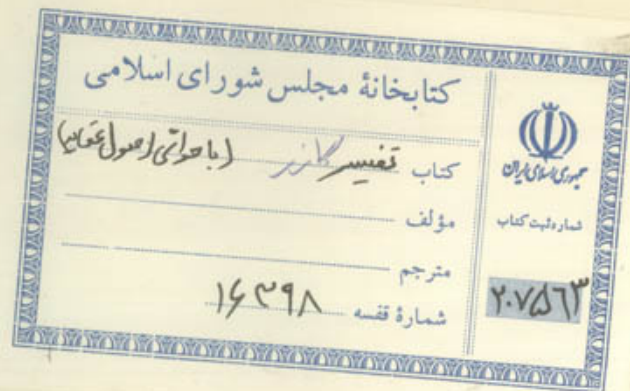 کتابخانهٔ مجلس شورای اسلامی
کتاب تفسیر گازر (با حواشی اصول عقاید)
مؤلف
مترجم
شمارهٔ قفسه ۱۶۳۹۸
جمهوری اسلامی ایران
شماره ثبت کتاب
۲۰۷۵۶۳